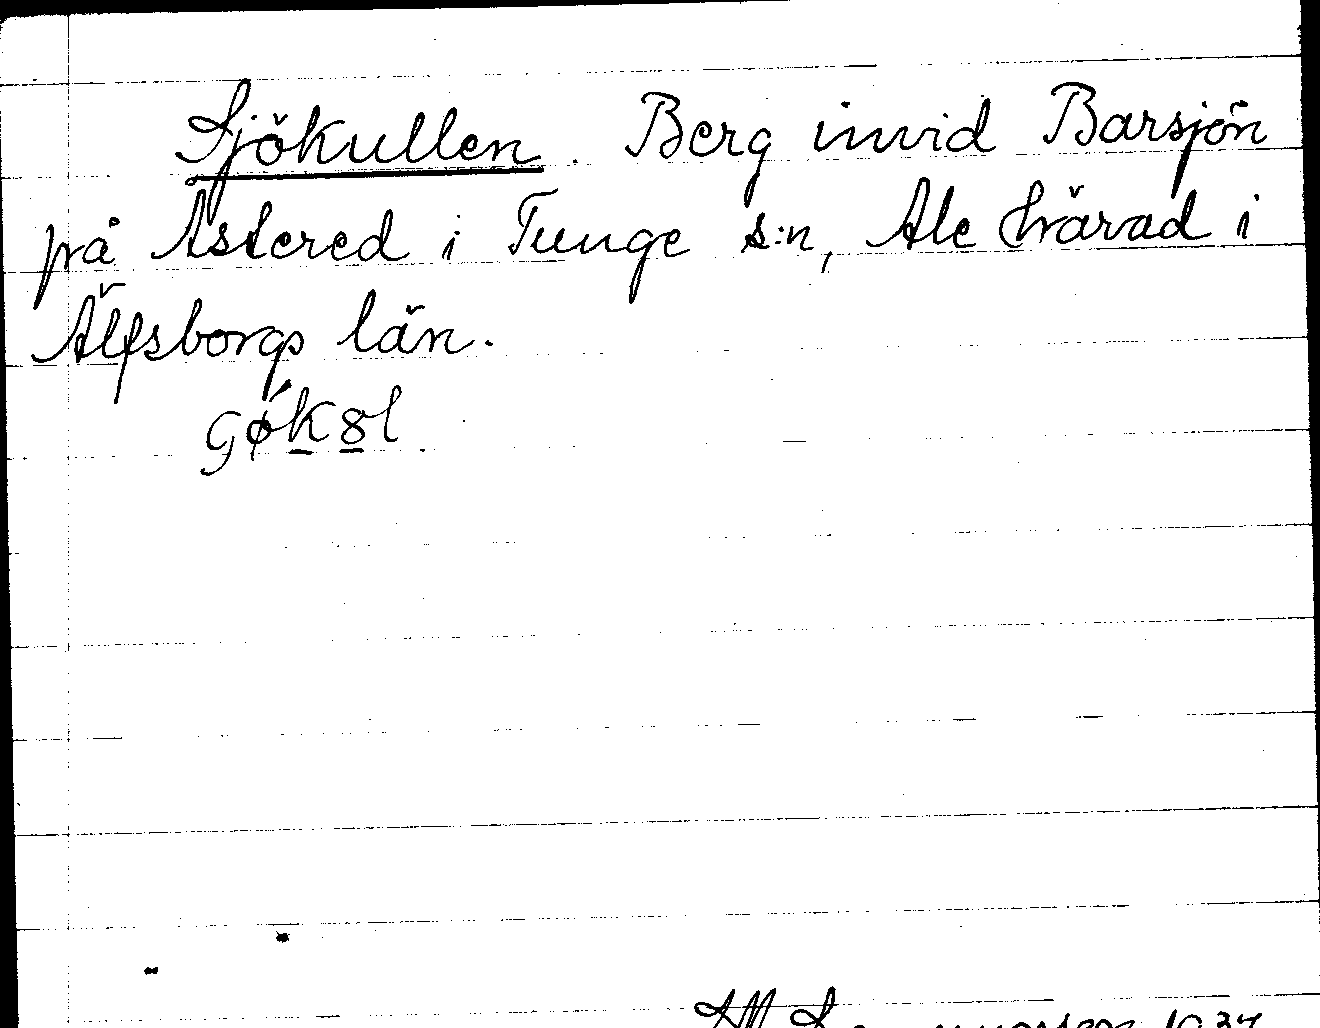 Sjökullen. Berg invid Barsjön
på Astered i Tunge s:n, Ale härad i
Älfsborgs län.